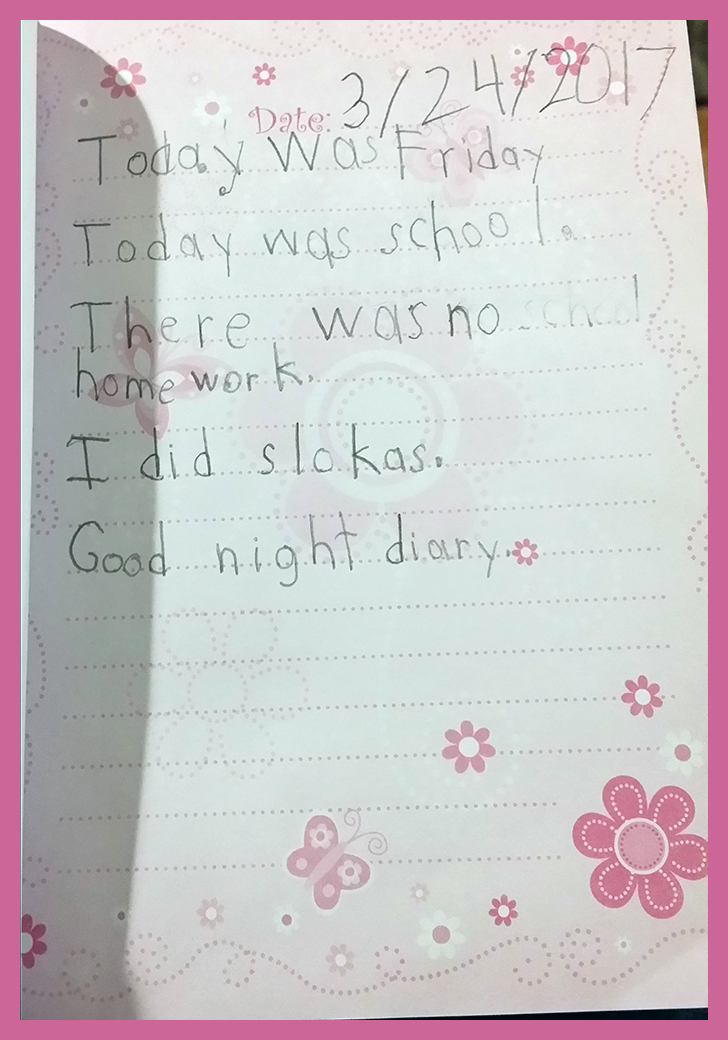 Date: 3/24/2017
Today was Friday
Today was school.
There was no school
homework.
I did slokas.
Good night diary.